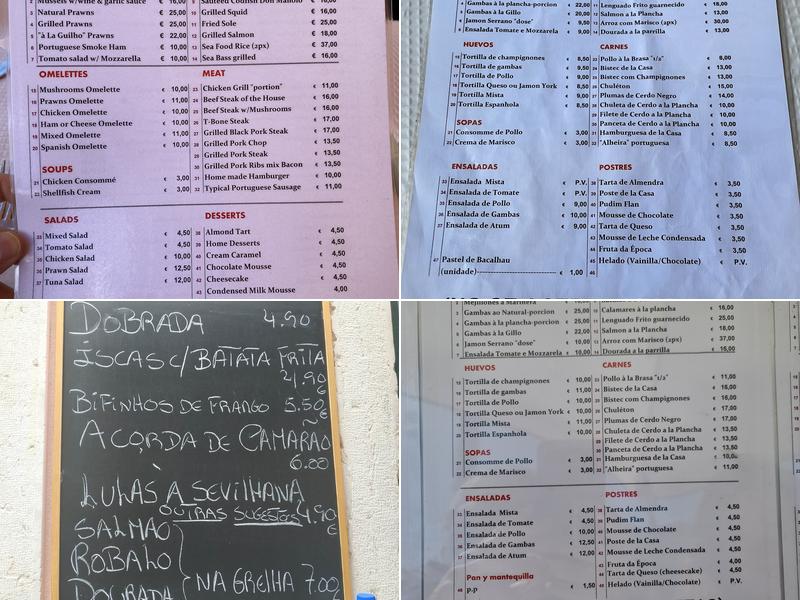 2 Mussels w/wine & garlic sauce € 16,00
3 Natural Prawns € 25,00
4 Grilled Prawns € 25,00
5 "À La Guilho" Prawns € 22,00
6 Portuguese Smoke Ham € 10,00
7 Tomato salad w/ Mozzarella € 10,00
9 Sauteed Codfish Don Manolo € 18,00
10 Grilled Squid € 16,00
11 Fried Sole € 25,00
12 Grilled Salmon € 18,00
13 Sea Food Rice (2px) € 37,00
14 Sea Bass grilled € 16,00
OMELETTES
15 Mushrooms Omelette € 10,00
16 Prawns Omelette € 11,00
17 Chicken Omelette € 10,00
18 Ham or Cheese Omelette € 10,00
19 Mixed Omelette € 11,00
20 Spanish Omelette € 10,00
SOUPS
21 Chicken Consommé € 3,00
22 Shellfish Cream € 3,00
MEAT
23 Chicken Grill "portion" € 11,00
24 Beef Steak of the House € 16,00
25 Beef Steak w/Mushrooms € 16,00
26 T-Bone Steak € 17,00
27 Grilled Black Pork Steak € 17,00
28 Grilled Pork Chop € 13,50
29 Grilled Pork Steak € 13,50
30 Grilled Pork Ribs mix Bacon € 13,50
31 Home made Hamburger € 10,00
32 Typical Portuguese Sausage € 11,00
SALADS
33 Mixed Salad € 4,50
34 Tomato Salad € 4,50
35 Chicken Salad € 10,00
36 Prawn Salad € 12,50
37 Tuna Salad € 12,00
DESSERTS
38 Almond Tart € 4,50
39 Home Desserts € 4,50
40 Cream Caramel € 4,50
41 Chocolate Mousse € 4,50
42 Cheesecake € 4,50
43 Condensed Milk Mouse 4,00
4 Gambas à la plancha-porcion € 22,00
5 Gambas à la Gillo € 20,00
6 Jamon Serrano "dose" € 9,00
8 Ensalada Tomate x Mozzarela € 9,00
11 Lenguado Frito guarnecido € 18,00
12 Salmon a la Plancha € 13,00
13 Arroz com Marisco (2px) € 30,00
14 Dourada a la parrilla € 13,00
HUEVOS
15 Tortilla de champignones € 8,50
16 Tortilla de gambas € 9,50
17 Tortilla de Pollo € 9,00
18 Tortilla Queso ou Jamon York € 8,50
19 Tortilla Mista € 9,00
20 Tortilla Espanhola € 8,50
SOPAS
21 Consomme de Pollo € 3,00
22 Crema de Marisco € 3,00
CARNES
23 Pollo à la Brasa "1/2" € 8,00
24 Bistec de la Casa € 13,00
25 Bistec com Champignones € 13,00
26 Chuletón € 15,00
27 Plumas de Cerdo Negro € 14,00
28 Chuleta de Cerdo à la Plancha € 10,00
29 Filete de Cerdo à la Plancha € 10,00
30 Panceta de Cerdo à la Plancha € 10,00
31 Hamburguesa de la Casa € 8,50
32 "Alheira" portuguesa € 8,50
ENSALADAS
33 Ensalada Mista € P.V.
34 Ensalada de Tomate € P.V.
35 Ensalada de Pollo € 9,00
36 Ensalada de Gambas € 10,00
37 Ensalada de Atum € 9,00
47 Pastel de Bacalhau
(unidade) € 1,00
POSTRES
38 Tarta de Almendra € 3,50
39 Poste de la Casa € 3,50
40 Pudim Flan € 3,50
41 Mousse de Chocolate € 3,50
42 Tarta de Queso € 3,50
43 Mousse de Leche Condensada € 3,50
44 Fruta da Època € 3,50
45 Helado (Vainilha/Chocolate) € P.V.
46
DOBRADA 4.90
ÍSCAS C/ BATATA FRITA
4.90 €
BIFINHOS DE FRANGO 5.50 €
AÇORDA DE CAMARÃO
6.00
LULAS À SEVILHANA
4.90 €
OUTRAS SUGESTÕES
SALMÃO
ROBALO
DOURADA
NA GRELHA 7.00 €
Mejillones a Marinera
3 Gambas ao Natural-porcion € 25,00
4 Gambas à la plancha-porcion € 25,00
5 Gambas à la Gillo € 22,00
6 Jamon Serrano "dose" € 10,00
7 Ensalada Tomate x Mozzarela € 10,00
10 Calamares à la plancha € 16,00
11 Lenguado Frito guarnecido € 25,00
12 Salmon a la Plancha € 18,00
13 Arroz com Marisco (2px) € 37,00
14 Dourada a la parrilla € 16,00
HUEVOS
15 Tortilla de champignones € 10,00
16 Tortilla de gambas € 11,00
17 Tortilla de Pollo € 10,00
18 Tortilla Queso ou Jamon York € 10,00
19 Tortilla Mista € 11,00
20 Tortilla Espanhola € 10,00
SOPAS
21 Consomme de Pollo € 3,00
22 Crema de Marisco € 3,00
CARNES
23 Pollo à la Brasa "1/2" € 11,00
24 Bistec de la Casa € 16,00
25 Bistec com Champignones € 16,00
26 Chuletón € 17,00
27 Plumas de Cerdo Negro € 17,00
28 Chuleta de Cerdo à la Plancha € 13,50
29 Filete de Cerdo à la Plancha € 13,50
30 Panceta de Cerdo à la Plancha € 13,50
31 Hamburguesa de la Casa € 10,00
32 "Alheira" portuguesa € 11,00
ENSALADAS
33 Ensalada Mista € 4,50
34 Ensalada de Tomate € 4,50
35 Ensalada de Pollo € 10,00
36 Ensalada de Gambas € 12,50
37 Ensalada de Atum € 12,00
Pan y mantequilla
48 p.p € 1,50
POSTRES
38 Tarta de Almendra € 4,50
39 Pudim Flan € 4,50
40 Mousse de Chocolate € 4,50
41 Poste de la Casa € 4,50
42 Mousse de Leche Condensada € 4,50
43 Fruta da Època € 4,00
44 Tarta de Queso (cheesecake) € 4,50
45 Helado (Vainilla/Chocolate) € P.V.